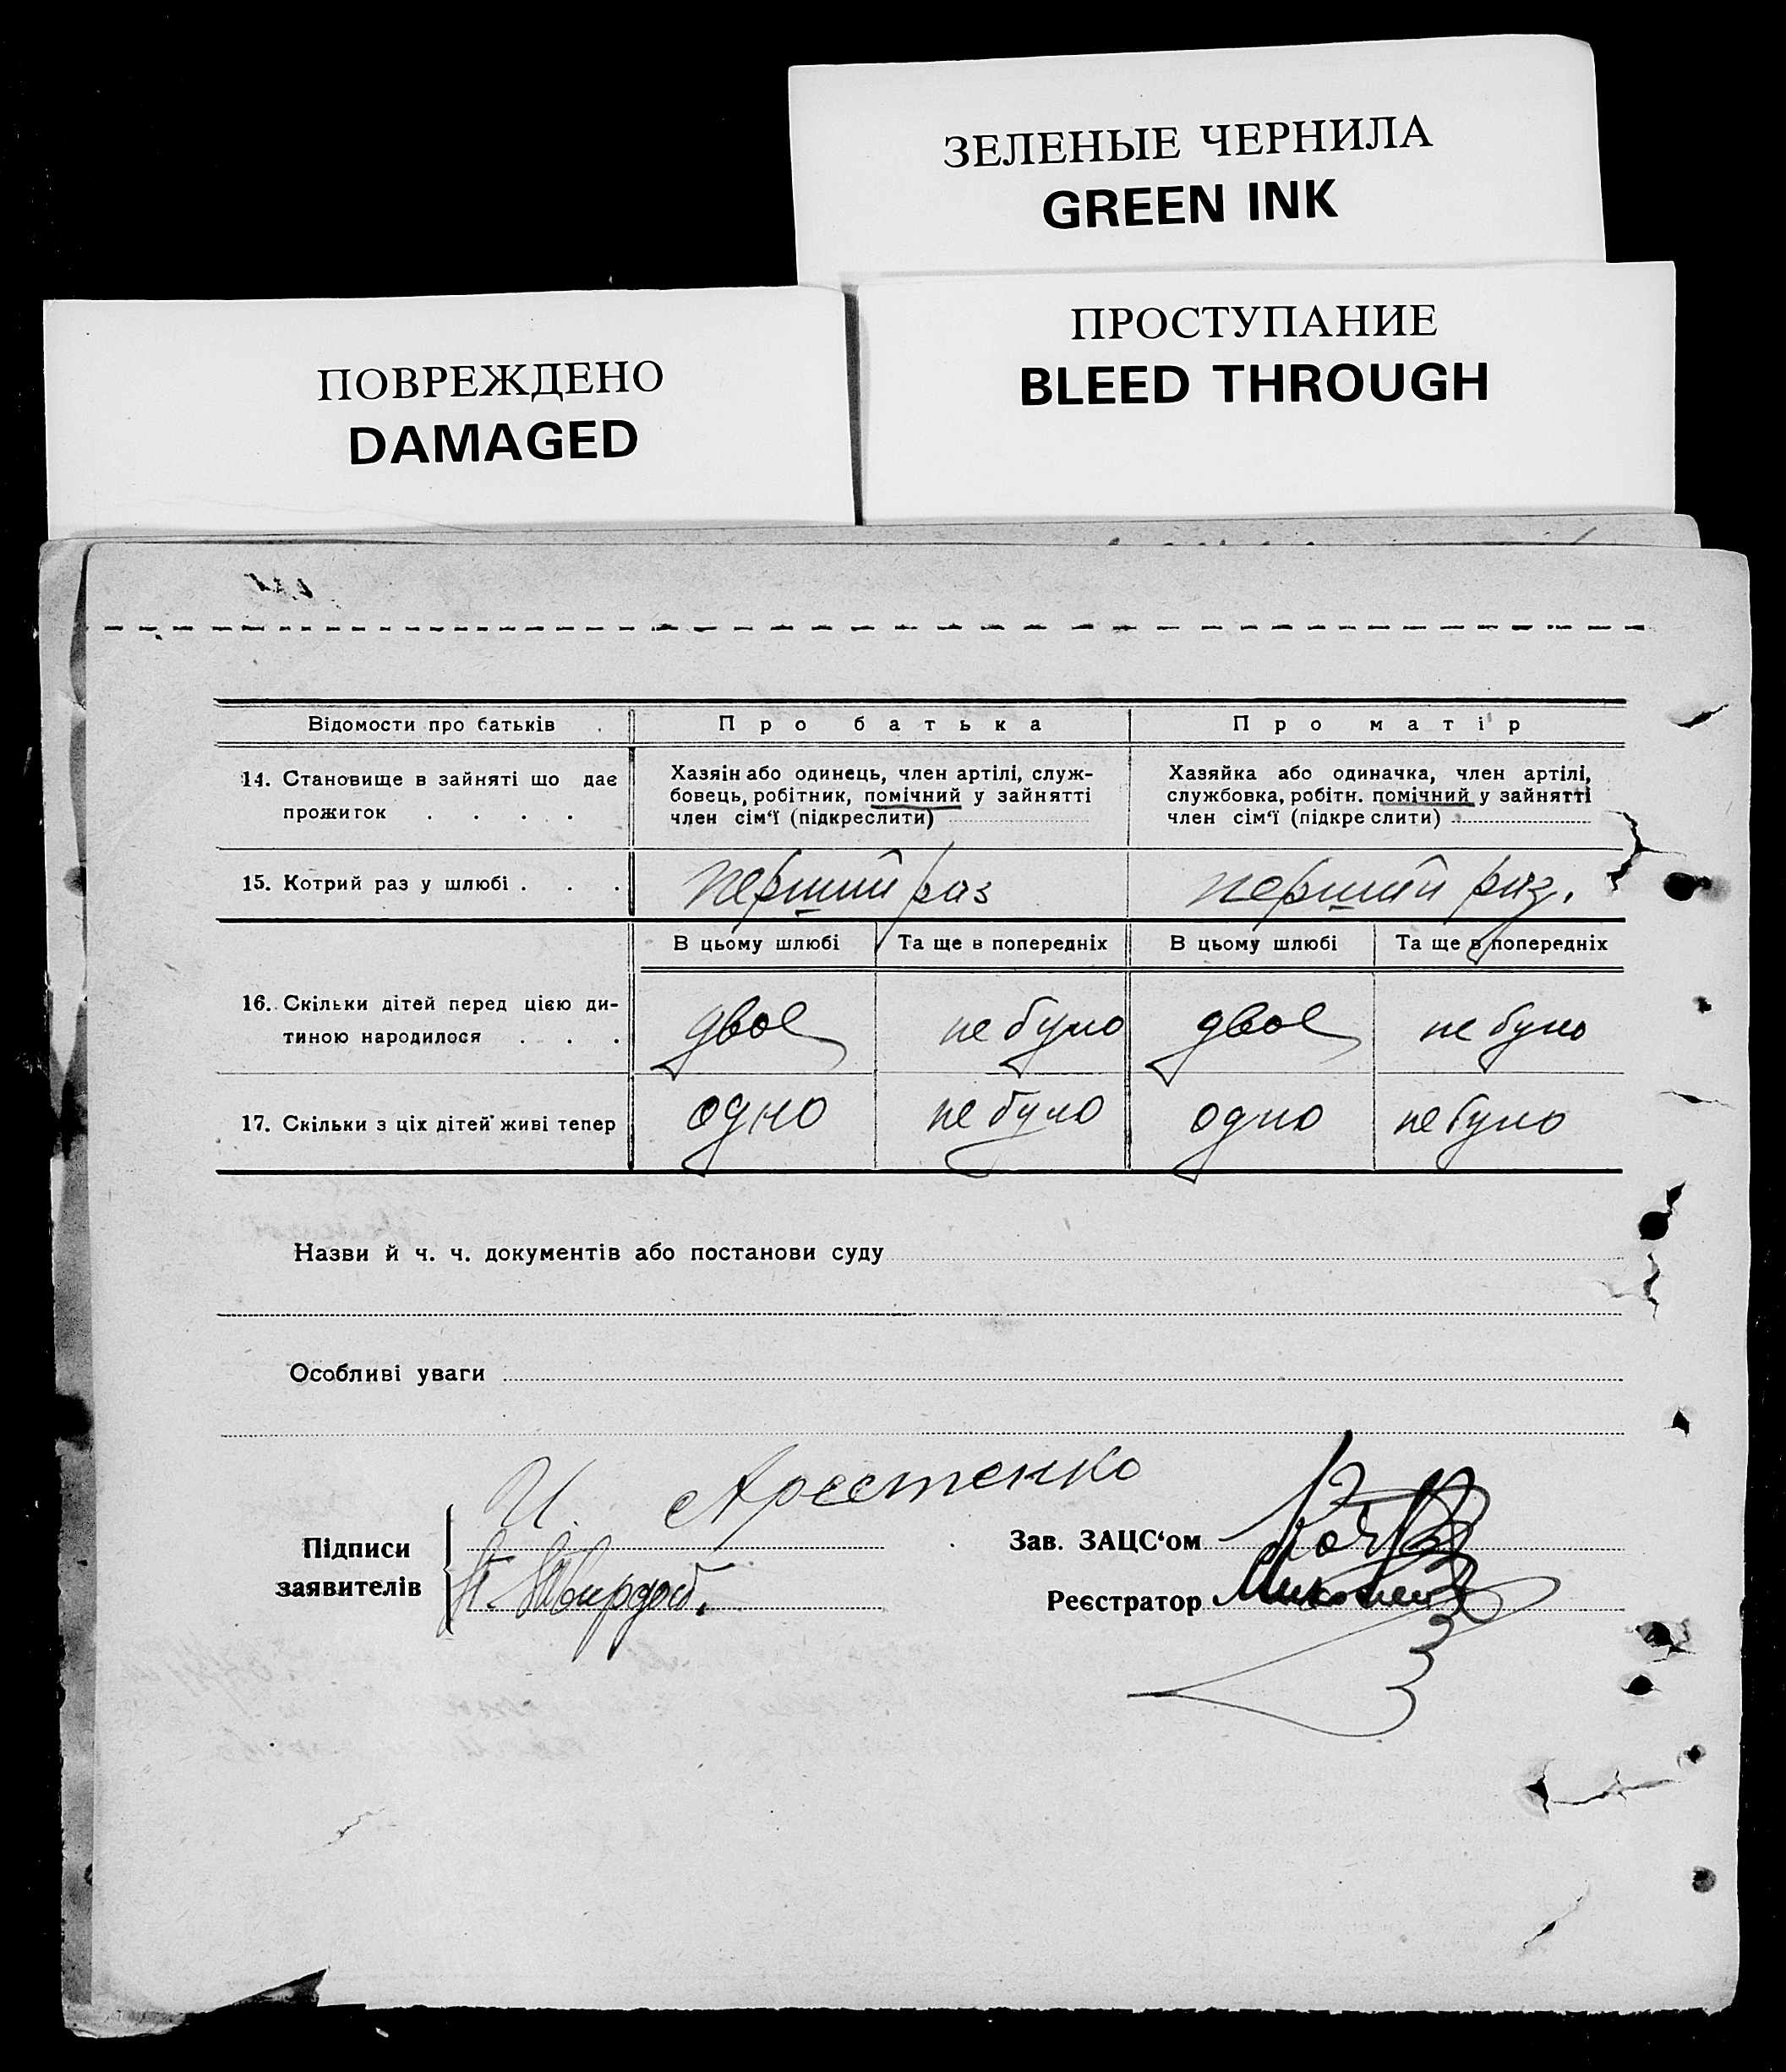 ЗЕЛЕНЫЕ ЧЕРНИЛА
GREEN INK
ПРОСТУПАНИЕ
BLEED THROUGH
ПОВРЕЖДЕНО
DAMAGED
Відомости про батьків
Про батька
Про матір
14. Становище в зайняті що дає
прожиток . . . .
Хазяін або одинець, член артілі, служ-
бовець, робітник, помічний у зайнятті
член сім‘ї (підкреслити)
Хазяйка або одиначка, член артілі,
службовка, робітн. помічний у зайнятті
член сім‘ї (підкреслити)
15. Котрий раз у шлюбі . . .
перший раз
перший раз.
В цьому шлюбі
Та ще в попередніх
В цьому шлюбі
Та ще в попередніх
16. Скільки дітей перед цією ди-
тиною народилося . . .
двоє
не було
двоє
не було
17. Скільки з ціх дітей живі тепер
одно
не було
одно
не було
Назви й ч. ч. документів або постанови суду
Особливі уваги
И. Арестенко
Підписи
заявителів
Зав. ЗАЦС‘ом
Реєстратор